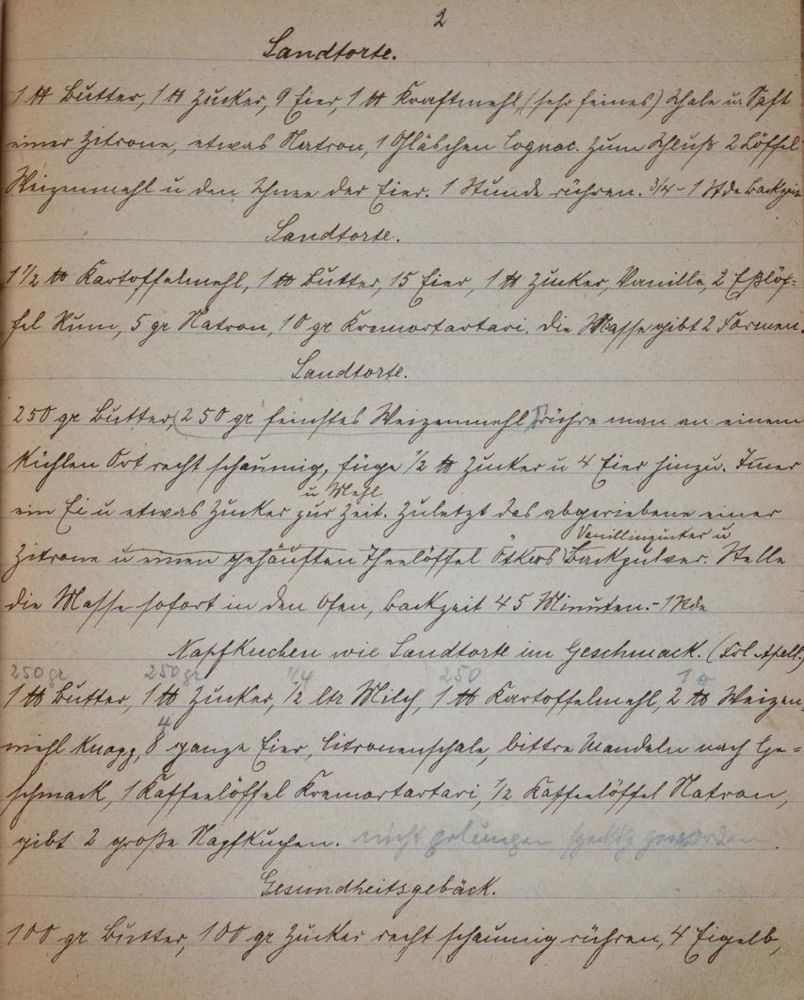 2
Sandtorte.
1 ℔ Butter, 1 ℔ Zucker, 9 Eier, 1 ℔ Kraftmehl (sehr feines) Schale u. Saft
einer Zitrone, etwas Natron, 1 Gläschen Cognac. Zum Schluß 2 Löffel
Weizenmehl u den Schnee der Eier. 1 Stunde rühren. 3/4 - 1 Stde Backzeit
Sandtorte.
1 1/2 ℔ Kartoffelmehl, 1 ℔ Butter, 15 Eier, 1 ℔ Zucker, Vanille, 2 Eßlöf=
fel Rum, 5 gr Natron, 10 gr Kremortartari. Die Masse gibt 2 Formen.
Sandtorte.
250 gr Butter, (250 gr feinstes Weizenmehl) rühre man an einem
kühlen Ort recht schaumig, füge 1/2 ℔ Zucker u 4 Eier hinzu. Imer
u Mehl
ein Ei u etwas Zucker zur Zeit. Zuletzt das abgeriebene einer
Vanillinzucker u
Zitrone u einen gehäuften Theelöffel Ötkers Backpulver. Stelle
die Masse sofort in den Ofen, Backzeit 45 Minuten.- 1 Stde
Napfkuchen wie Sandtorte im Geschmack. (Frl
250 gr 250 gr 1/4 250 1 ℔
1 ℔ Butter, 1 ℔ Zucker, 1/2 ltr Milch, 1 ℔ Kartoffelmehl, 2 ℔ Weizen
4
mehl knapp, 8 ganze Eier, Citronenschale, bittre Mandeln nach Ge=
schmack, 1 Kaffeelöffel Kremortartari, 1/2 Kaffeelöffel Natron,
gibt 2 große Napfkuchen. nicht gelungen speckig geworden
Gesundheitsgebäck.
100 gr Butter, 100 gr Zucker recht schaumig rühren, 4 Eigelb,